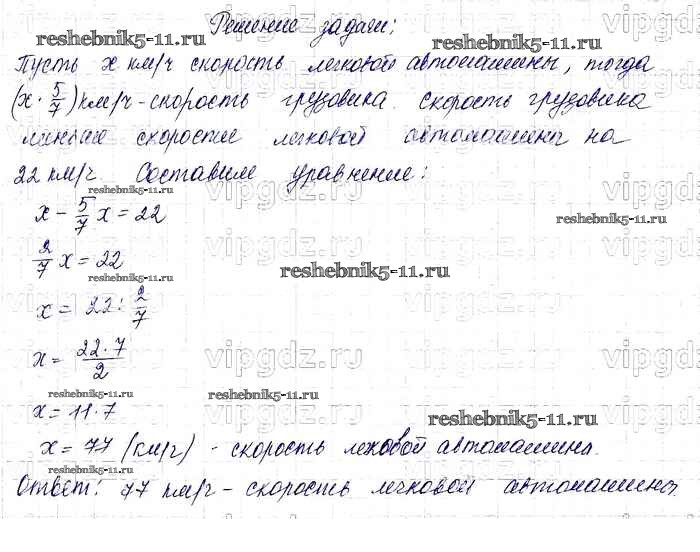 Решение задачи:
Пусть x км/ч скорость легковой автомашины, тогда
(x · 5/7) км/ч - скорость грузовика. Скорость грузовика
меньше скорости легковой автомашины на
22 км/ч. Составим уравнение:
x - 5/7 x = 22
2/7 x = 22
x = 22 : 2/7
x = 22 · 7 / 2
x = 11 · 7
x = 77 (км/ч) - скорость легковой автомашины.
Ответ: 77 км/ч - скорость легковой автомашины.
reshebnik5-11.ru
reshebnik5-11.ru
reshebnik5-11.ru
reshebnik5-11.ru
reshebnik5-11.ru
reshebnik5-11.ru
reshebnik5-11.ru
reshebnik5-11.ru
reshebnik5-11.ru
reshebnik5-11.ru
reshebnik5-11.ru
vipgdz.ru
vipgdz.ru
vipgdz.ru
vipgdz.ru
vipgdz.ru
vipgdz.ru
vipgdz.ru
vipgdz.ru